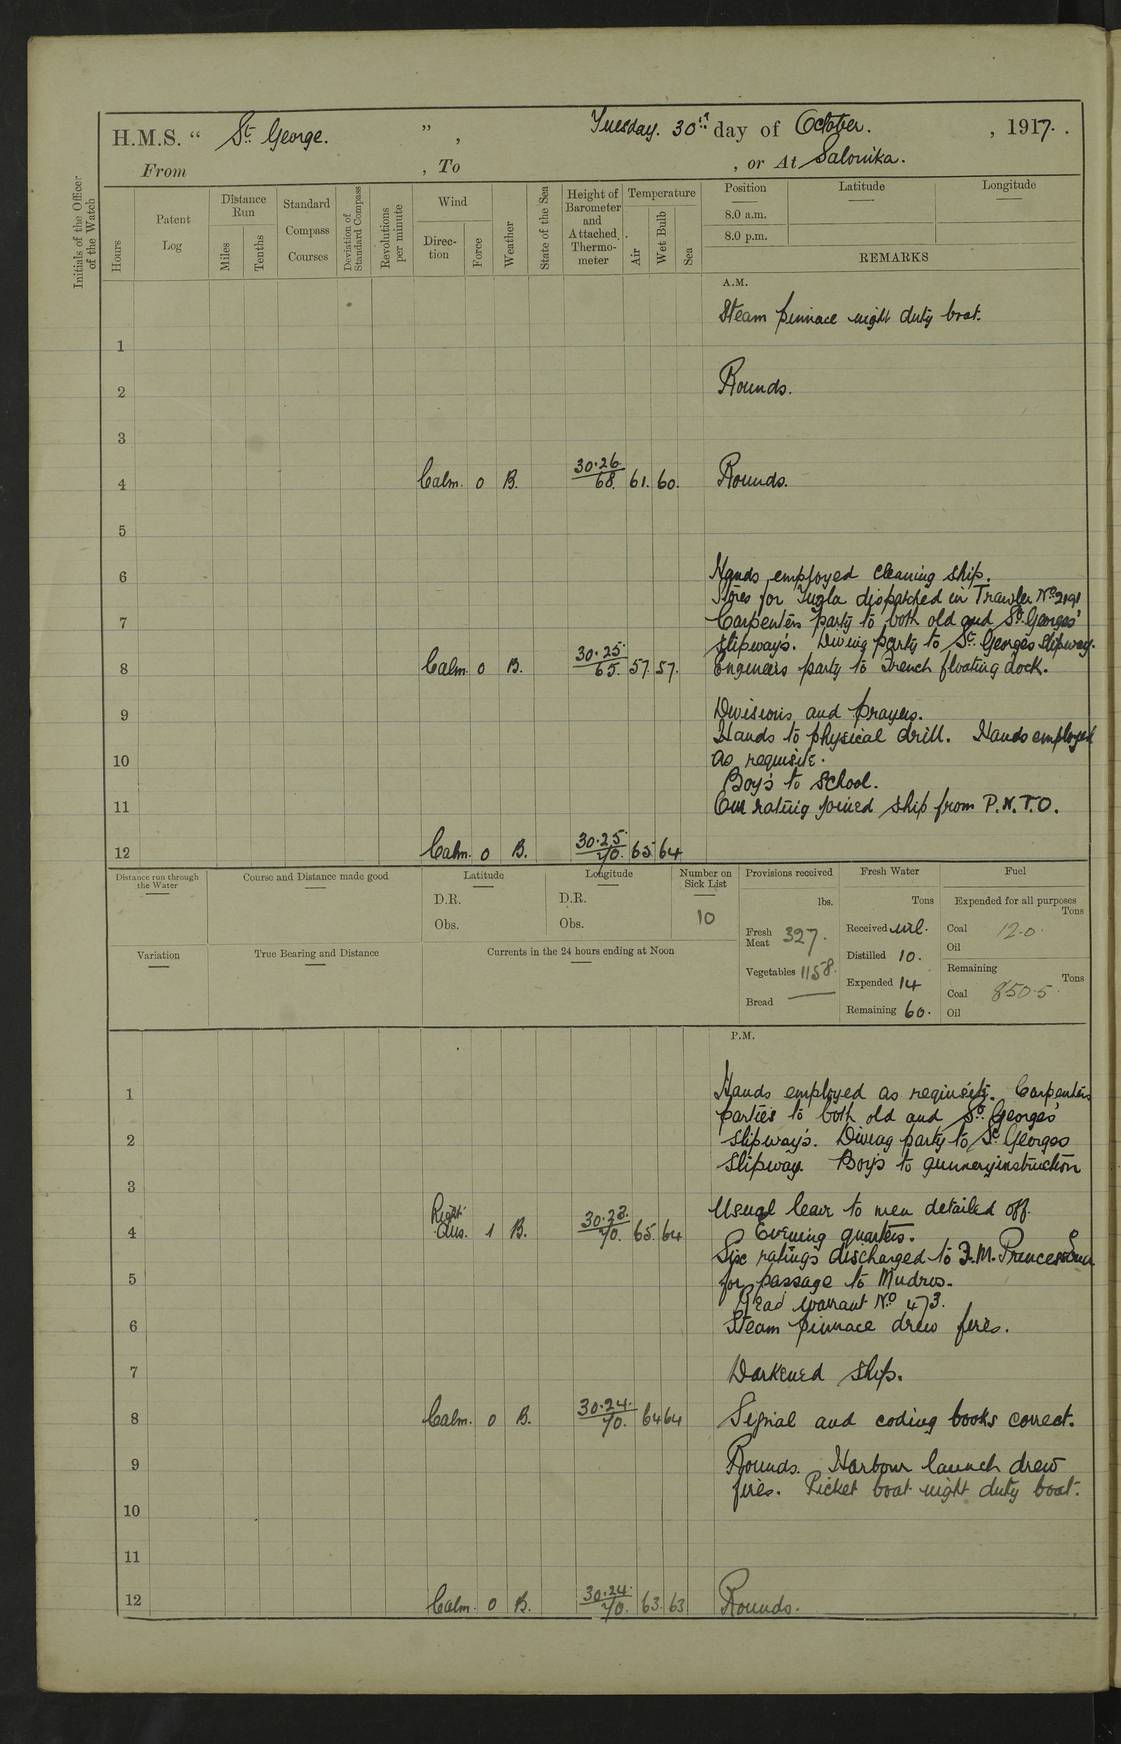 H.M.S. “ St. George. ” , Tuesday. 30th day of October. , 1917. .
From , To , or At Salonika.
Initials of the Officer of the Watch
Hours
Patent Log
Distance Run
Miles
Tenths
Standard Compass Courses
Deviation of Standard Compass
Revolutions per minute
Wind
Direction
Force
Weather
State of the Sea
Height of Barometer and Attached Thermometer
Temperature
Air
Wet Bulb
Sea
Position
Latitude
Longitude
8.0 a.m.
8.0 p.m.
REMARKS
A.M.
Steam pinnace night duty boat.
1
2 Rounds.
3
4 Calm. 0 B. 30.26 68. 61. 60. Rounds.
5
6 Hands employed cleaning ship.
Stores for dispatched in Trawler No. 2191
7 Carpenters party to both old and St. Georges'
slipway's. Diving party to St. Georges slipway.
8 Calm. 0 B. 30.25 65. 57. 57. Engineers party to French floating dock.
9 Divisions and prayers.
Hands to physical drill. Hands employed
10 as requisite.
Boy's to school.
11 One rating joined ship from P.N.T.O.
12 Calm. 0 B. 30.25 70. 65 64
Distance run through the Water
Course and Distance made good
Latitude
D.R.
Obs.
Longitude
D.R.
Obs.
Number on Sick List
10
Provisions received
lbs.
Fresh Meat 327.
Vegetables 1158.
Bread —
Fresh Water
Tons
Received nil.
Distilled 10.
Expended 14
Remaining 60.
Fuel
Expended for all purposes
Tons
Coal 12.0
Oil
Remaining
Tons
Coal 850.5
Oil
Variation
True Bearing and Distance
Currents in the 24 hours ending at Noon
P.M.
1 Hands employed as requisite. Carpenters
parties to both old and St. Georges'
2 slipway's. Diving party to St. Georges
slipway. Boys to gunnery instruction
3
Usual leave to men detailed off.
4 Light Airs. 1 B. 30.23. 70. 65. 64 Evening quarters.
Six ratings discharged to F.M. Princess Ena
5 for passage to Mudros.
Read warrant No 473.
6 Steam pinnace drew fires.
7 Darkened ship.
8 Calm. 0 B. 30.24. 70. 64 64 Signal and coding books correct.
9 Rounds. Harbour launch drew
fires. Picket boat night duty boat.
10
11
12 Calm. 0 B. 30.24. 70. 63. 63 Rounds.